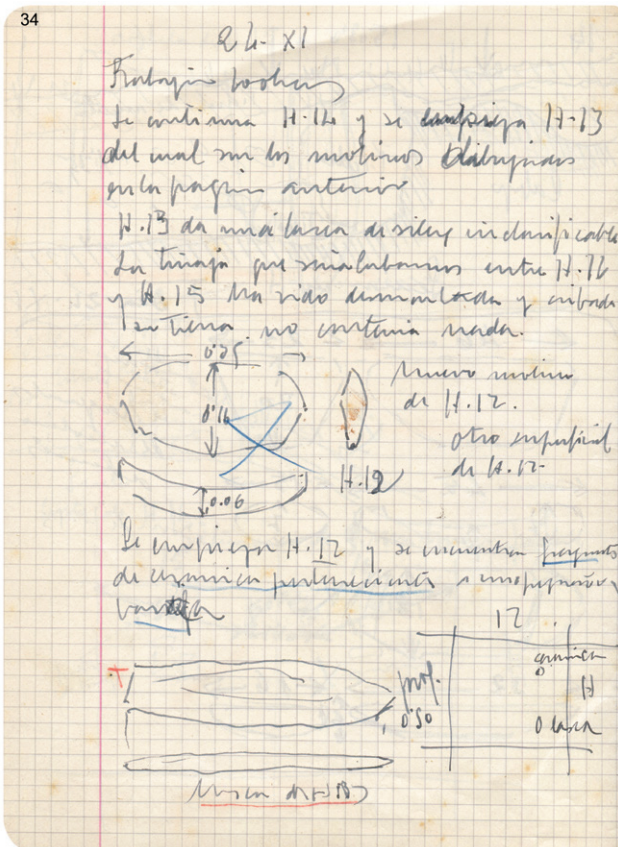 34
24-XI
Trabajan
Se continua H.14 y se empieza H-13
del cual son los molinos dibujados
en la pagina anterior
H.13 da una lasca de silex inclasificable
La tinaja que señalabamos entre H.16
y H.15 ha sido desmontada y cribada
su tierra no contenia nada.
0.16
Nuevo molino
de H.12.
otro superficial
de H.12
H.12
0.06
Se empieza H.12 y se encuentran fragmentos
de ceramica perteneciente a una pequeña
12
prof.
0.50
ceramica
H
lasca